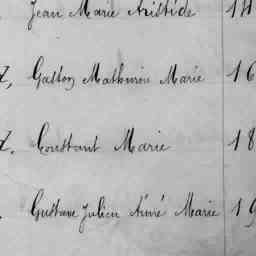 Jean Marie Aristide 14
t, Gaston Mathurin Marie 16
t. Constant Marie 18
Gustave Julien Aimé Marie 19